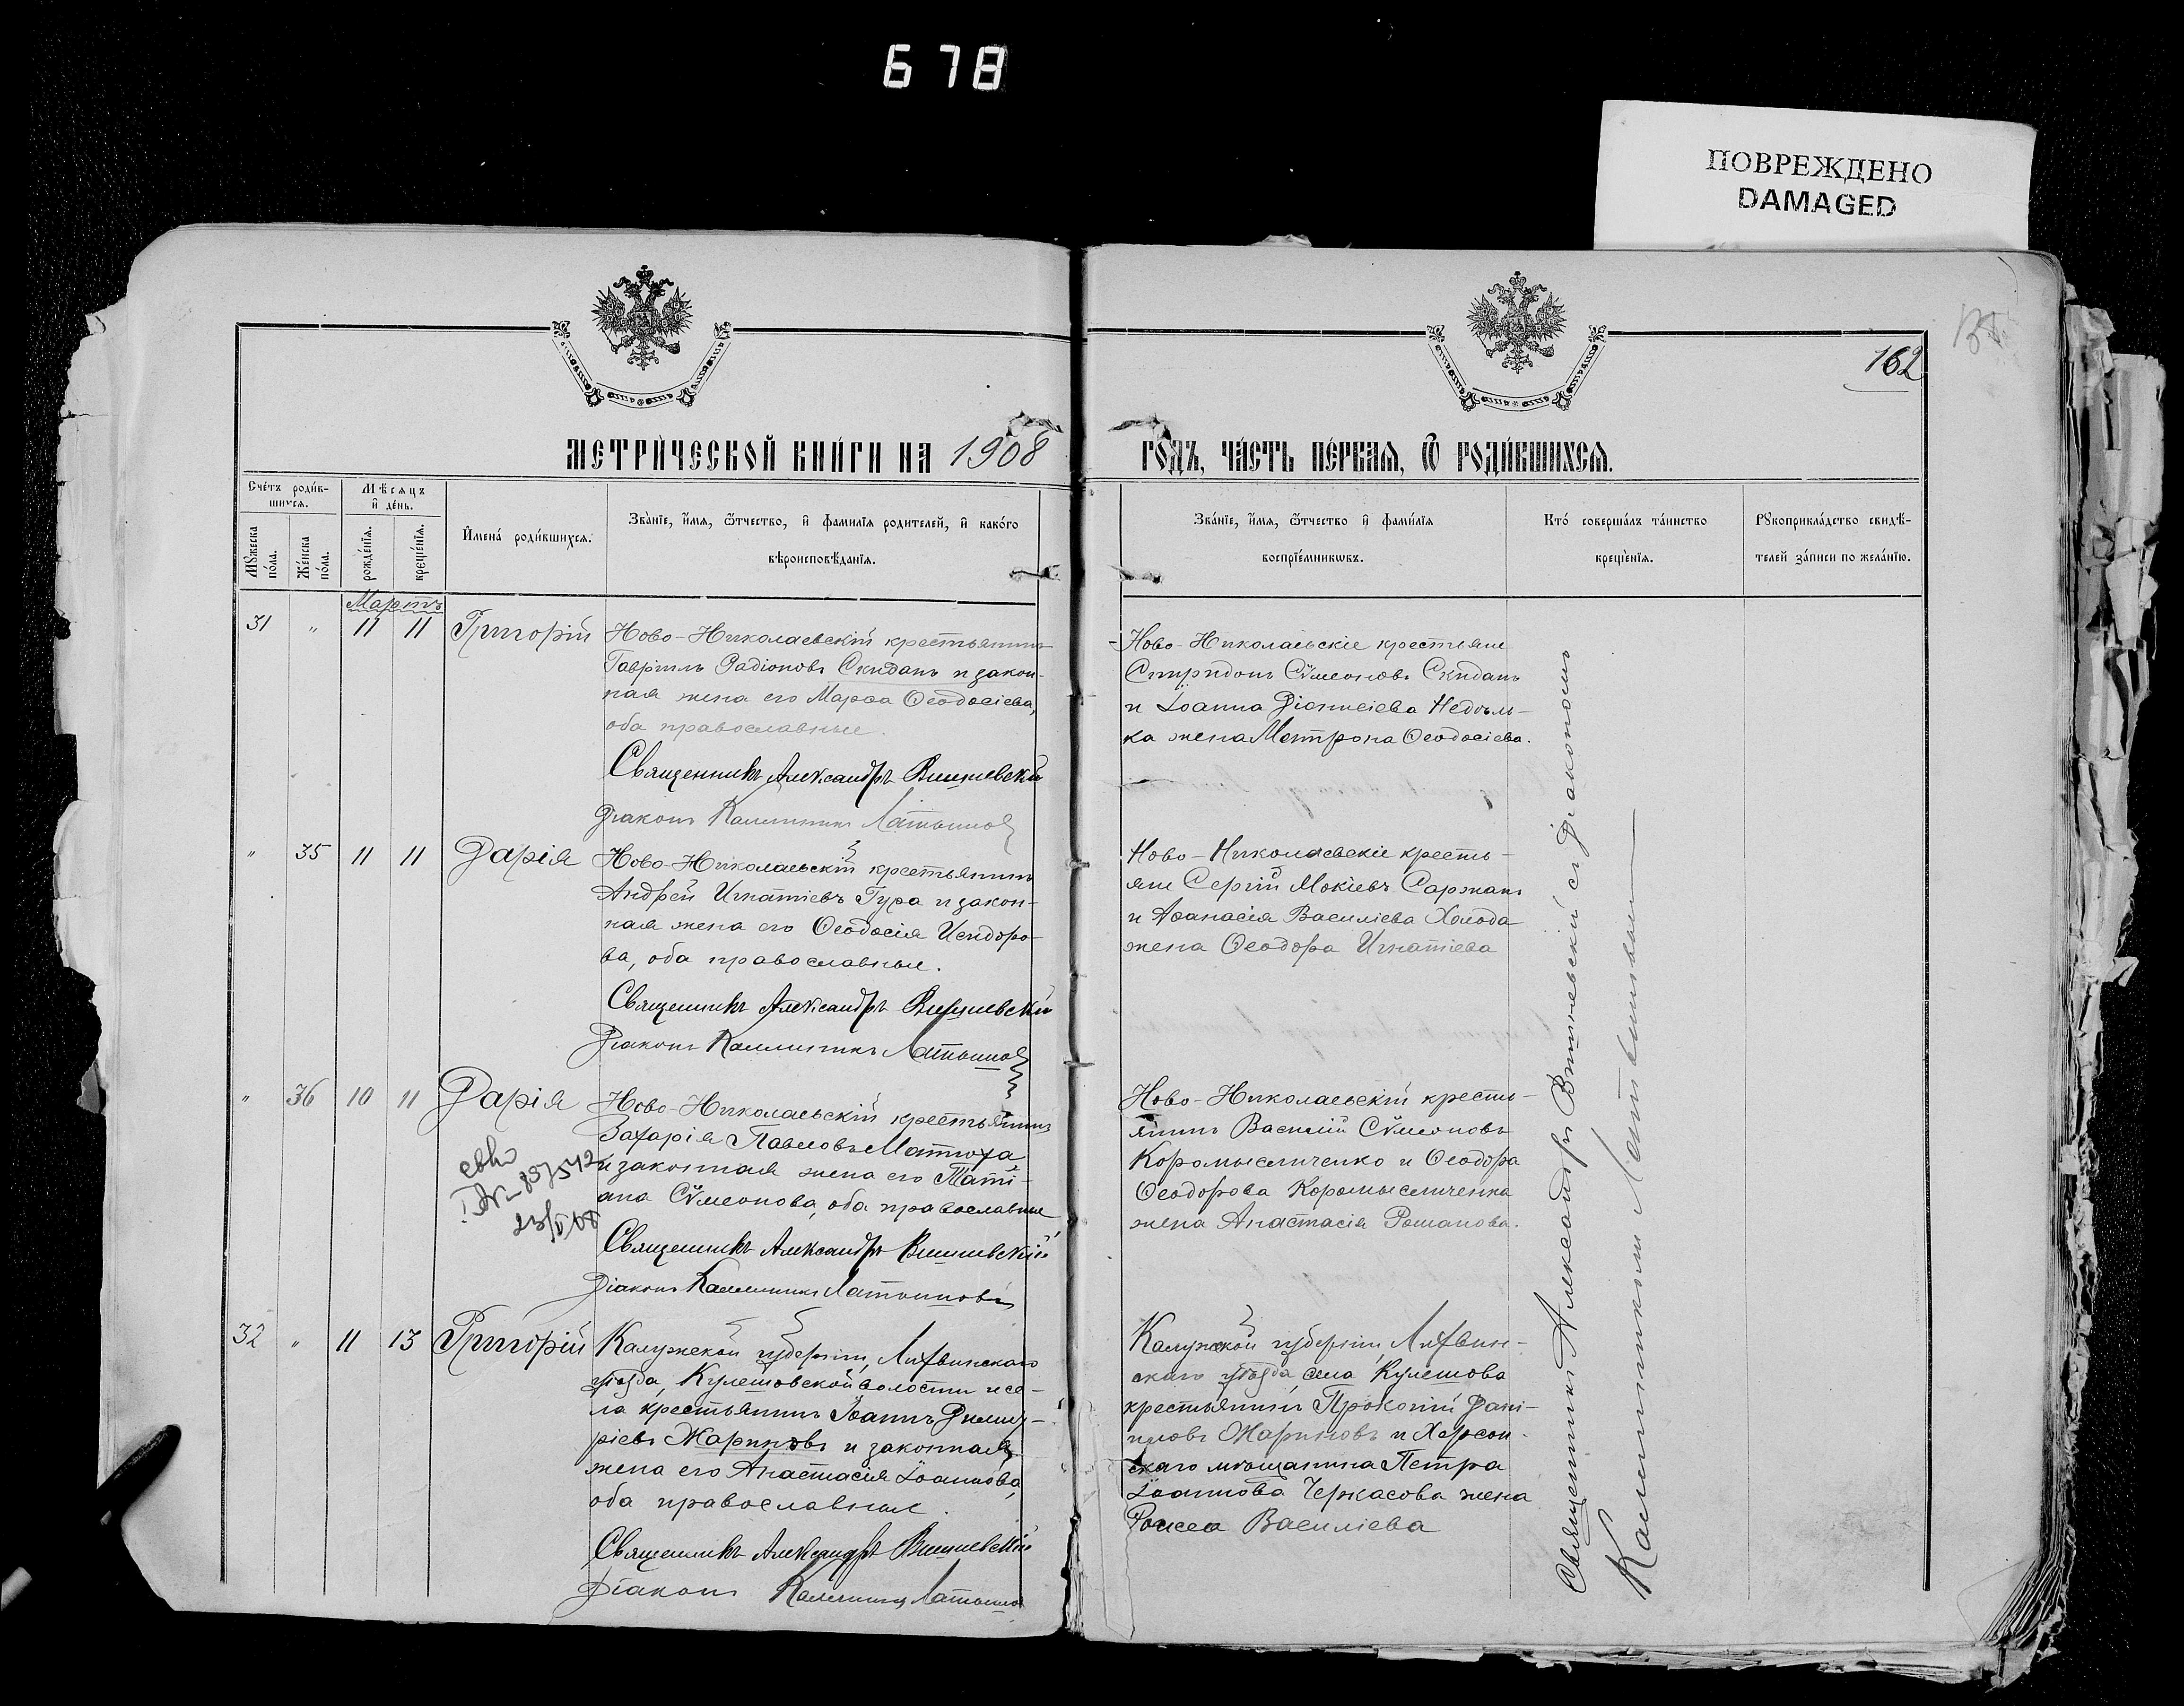 678
ПОВРЕЖДЕНО
DAMAGED
162
МЕТРИЧЕСКОЙ КНИГИ НА 1908
ГОДЪ, ЧАСТЬ ПЕРВАЯ, Ѿ РОДИВШИХСЯ.
Счетъ родив-
шихся.
Мѣсяцъ
и день.
Мужеска
пола.
Женска
пола.
рожденія.
крещенія.
Имена родившихся.
Званіе, имя, ѿтчество, и фамилія родителей, и какого
вѣроисповѣданія.
Званіе, имя, ѿтчество и фамилія
воспріемникωвъ.
Кто совершалъ таинство
крещенія.
Рукоприкладство свидѣ-
телей записи по желанію.
Мартъ
31 " 11 11 Григорій
Ново-Николаевскій крестьянинъ
Гавріилъ Радіоновъ Скиданъ и закон-
ная жена его Марѳа Ѳеодосіева,
оба православные.
Священникъ Александръ Вишневскій
Діаконъ Каллиникъ Латышовъ
Ново-Николаевскіе крестьяне
Спиридонъ Сѵмеоновъ Скиданъ
и Іоанна Діонисіева Недоль-
ка жена Матрона Ѳеодосіева.
" 35 11 11 Дарія
Ново-Николаевскій крестьянинъ
Андрей Игнатіевъ Гура и закон-
ная жена его Ѳеодосія Исидоро-
ва, оба православные.
Священникъ Александръ Вишневскій
Діаконъ Каллиникъ Латышовъ
Ново-Николаевскіе кресть-
яне Сергій Мокіевъ Саржанъ
и Аѳанасія Василіева Холода
жена Ѳеодора Игнатіева
" 36 10 11 Дарія
Ново-Николаевскій крестьянинъ
Захарія Павловъ Матюха
и законная жена его Таті-
ана Сѵмеонова, оба православные
Священникъ Александръ Вишневскій
Діаконъ Каллиникъ Латышовъ
Ново-Николаевскій кресть-
янинъ Василій Сѵмеоновъ
Коромысличенко и Ѳеодора
Ѳеодорова Коромысличенка
жена Анастасія Романова.
32 " 11 13 Григорій
Калужской губерніи, Лихвинскаго
уѣзда, Кулешовской волости и се-
ла крестьянинъ Іоаннъ Димит-
ріевъ Жариковъ и законная
жена его Анастасія Іоаннова,
оба православные.
Священникъ Александръ Вишневскій
Діаконъ Каллиникъ Латышовъ
Калужской губерніи, Лихвин-
скаго уѣзда, села Кулешова
крестьянинъ Прокопій Дані-
иловъ Жариковъ и Херсон-
скаго мѣщанина Петра
Іоаннова Черкасова жена
Раиса Василіева
Священникъ Александръ Вишневскій съ Діакономъ
Каллиникомъ Латышовымъ